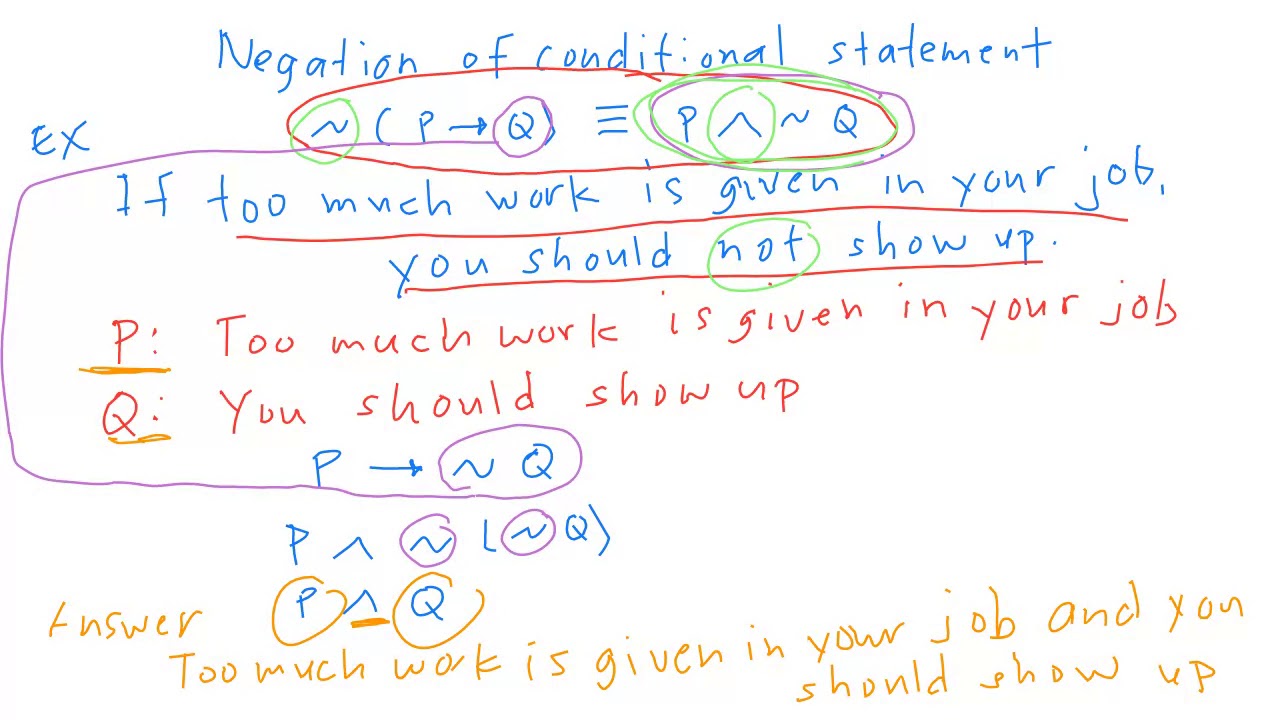 Negation of conditional statement
~ ( P → Q ) ≡ P ∧ ~ Q
EX
If too much work is given in your job,
you should not show up.
P: Too much work is given in your job
Q: You should show up
P → ~ Q
P ∧ ~ (~Q)
P ∧ Q
Answer
Too much work is given in your job and you
should show up